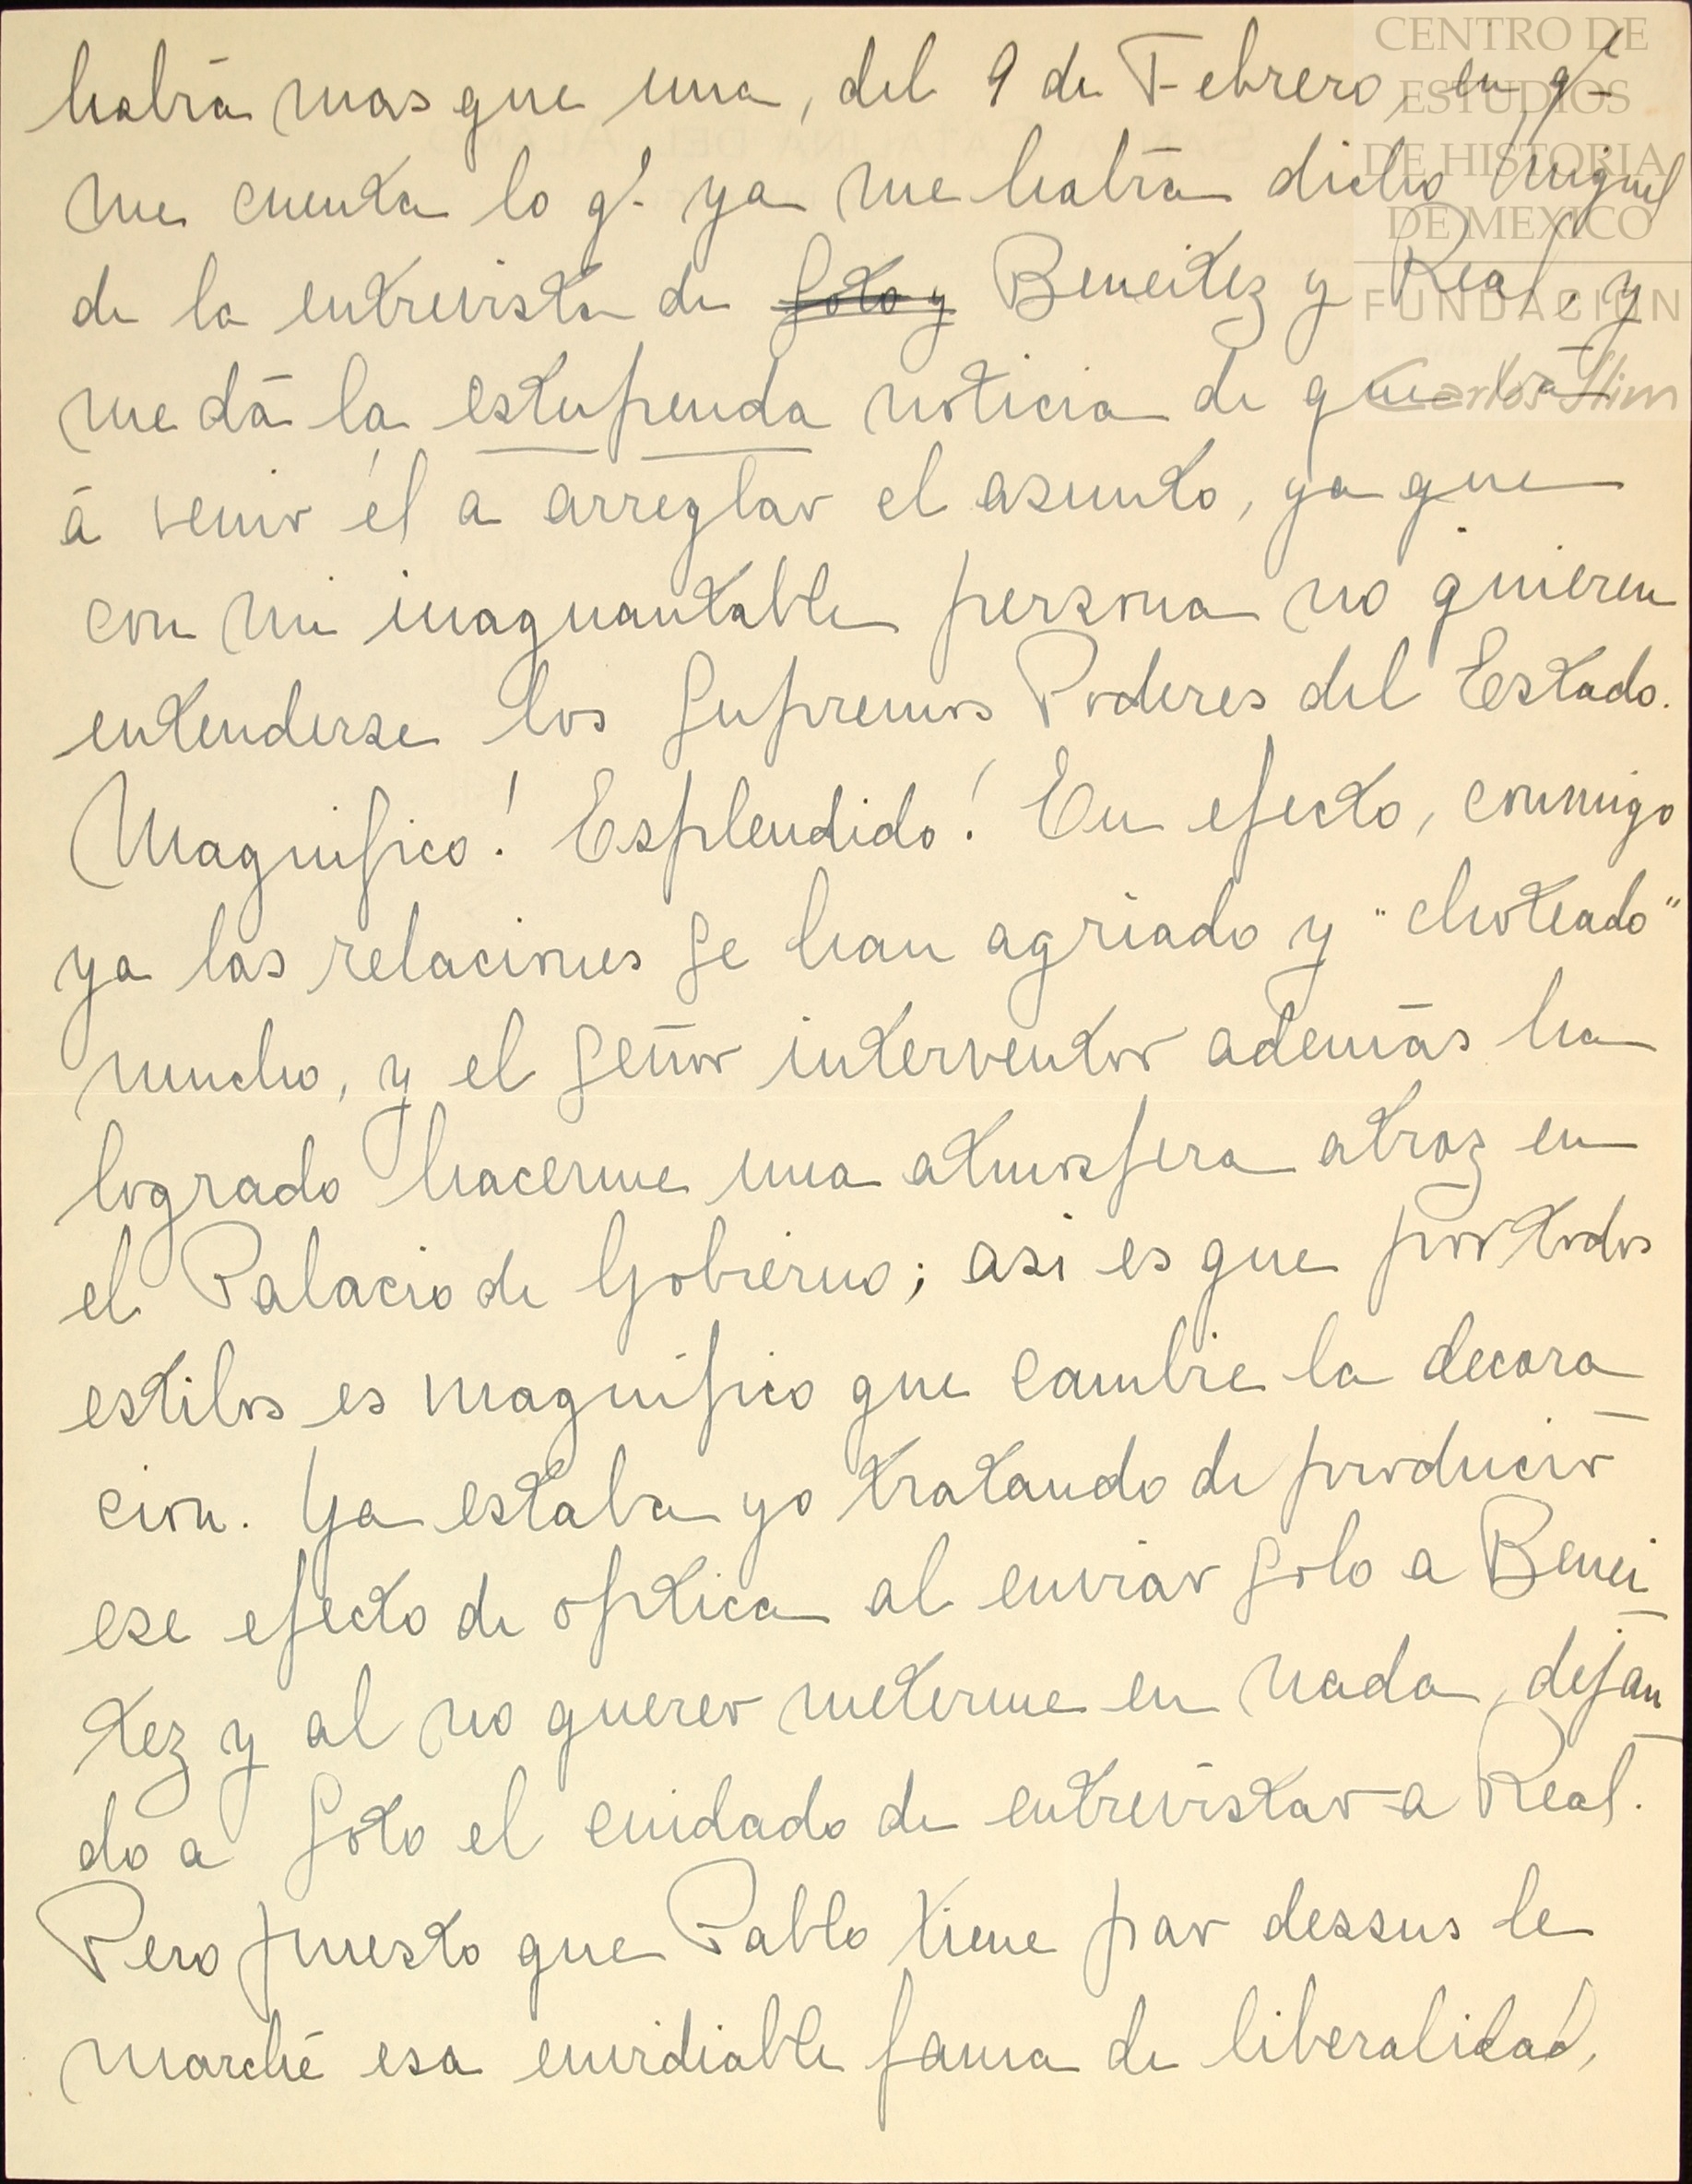 habrá mas que una, del 9 de Febrero, en q.e
me cuenta lo q.e ya me habia dicho Miguel
de la entrevista de Soto y Beneitez y Real, y
me dá la estupenda noticia de que vá
á venir él a arreglar el asunto, ya que
con mi inaguantable persona no quieren
entenderse los Supremos Poderes del Estado.
Magnifico! Esplendido! En efecto, conmigo
ya las relaciones se han agriado y "choteado"
mucho, y el señor interventor además ha
logrado hacerme una atmosfera atroz en
el Palacio de Gobierno; asi es que por todos
estilos es magnifico que cambie la decora
cion. Ya estaba yo tratando de producir
ese efecto de optica al enviar solo a Benei
tez y al no querer meterme en nada, dejan
do a Soto el cuidado de entrevistar a Real.
Pero puesto que Pablo tiene par dessus le
marché esa envidiable fama de liberalidad,
CENTRO DE
ESTUDIOS
DE HISTORIA
DE MEXICO
FUNDACIÓN
Carlos Slim